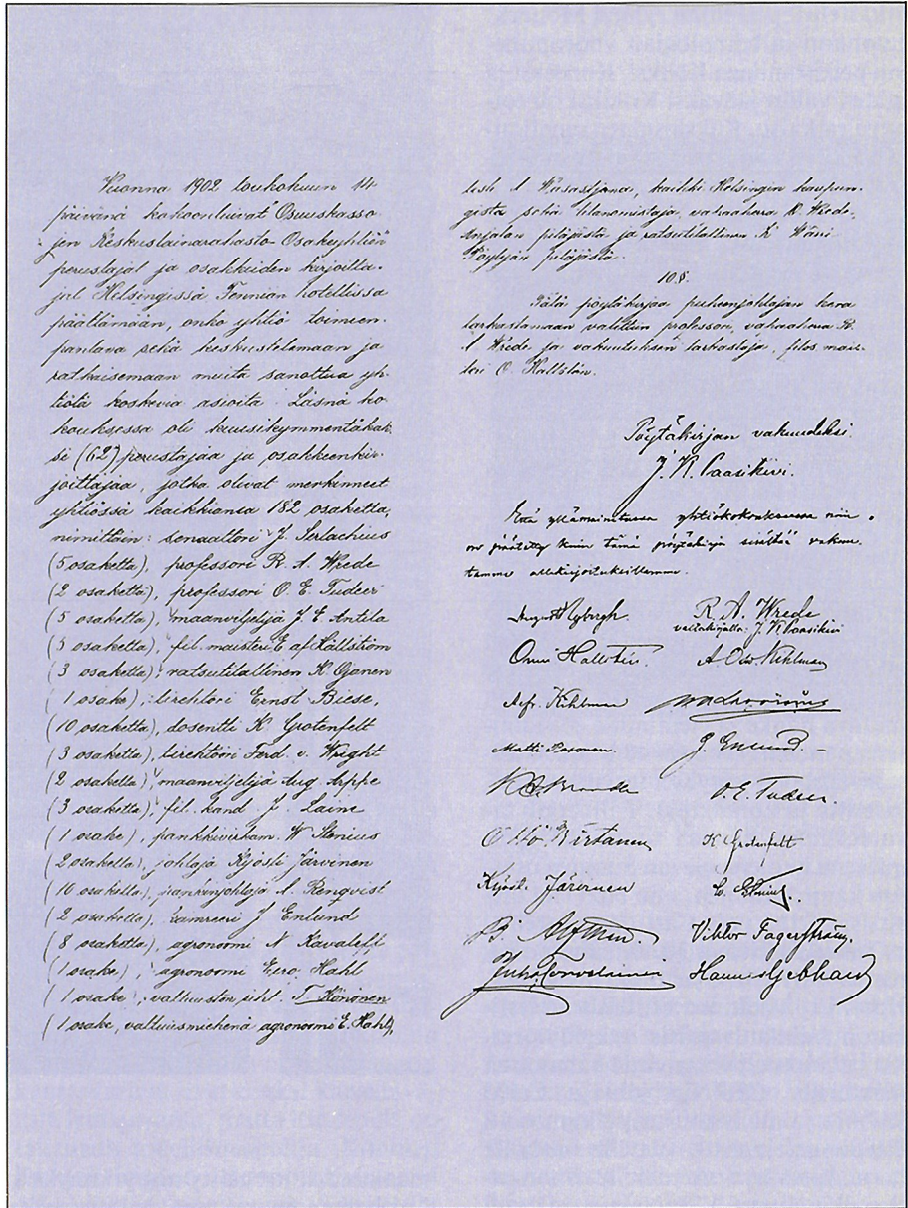 Vuonna 1902 toukokuun 14
päivänä kokoontuivat Osuuskasso-
jen Keskuslainarahasto Osakeyhtiön
perustajat ja osakkeiden kirjoitta-
jat Helsingissä Fennian hotellissa
päättämään, onko yhtiö toimeen-
pantava sekä keskustelemaan ja
ratkaisemaan muita sanottua yh-
tiötä koskevia asioita. Läsnä ko-
kouksessa oli kuusikymmentäkak-
si (62) perustajaa ja osakkeenkir-
joittajaa, jotka olivat merkinneet
yhtiössä kaikkiansa 182 osaketta,
nimittäin: senaattori J. Serlachius
(5 osaketta), professori R. A. Wrede
(2 osaketta), professori O. E. Tudeer
(5 osaketta), maanviljelijä J. E. Antila
(3 osaketta), fil. maisteri E. af Hällström
(3 osaketta), ratsutilallinen K. Ojanen
(1 osake), tirehtöri Ernst Biese,
(10 osaketta), dosentti K. Grotenfelt
(3 osaketta), tirehtööri Ferd. v. Wright
(2 osaketta), maanviljelijä Aug. Arppe
(3 osaketta), fil. kand. J. Laine
(1 osake), pankkivirkam. W. Stenius
(2 osaketta), johtaja Kyösti Järvinen
(10 osaketta), pankinjohtaja A. Renqvist
(2 osaketta), kamreri J. Enlund
(8 osaketta), agronomi N. Kavaleff
(1 osake), agronomi Eero Hahl
(1 osake), valtuuston joht. T. Hänönen
(1 osake, valtuusmiehenä agronomi E. Hahl),
A. Wasastjerna, kaikki Helsingin kaupun-
gista sekä tilanomistaja, vapaaherra K. Wrede
Anjalan pitäjästä ja ratsutilallinen K. Wärri
Köyliön pitäjästä.
10.§.
Tätä pöytäkirjaa puheenjohtajan kera
tarkastamaan valittiin professori, vapaaherra R.
A. Wrede ja vakuutuksen tarkastaja, filos. mais-
teri O. Hallstén.
Pöytäkirjan vakuudeksi:
J. K. Paasikivi.
Että yllämainitussa yhtiökokouksessa niin
on päätetty kuin tämä pöytäkirja sisältää vakuu-
tamme allekirjoituksillamme.
August Nybergh. R. A. Wrede
valtakirjalla: J. K. Paasikivi
Onni Hallstén. A. Osw. Kihlman
Alfr. Kihlman
Matti Paavonen J. Enlund.
O. E. Tudeer
Otto Virtanen K. Grotenfelt
Kyösti Järvinen
Viktor Fagerström.
Hannes Gebhard